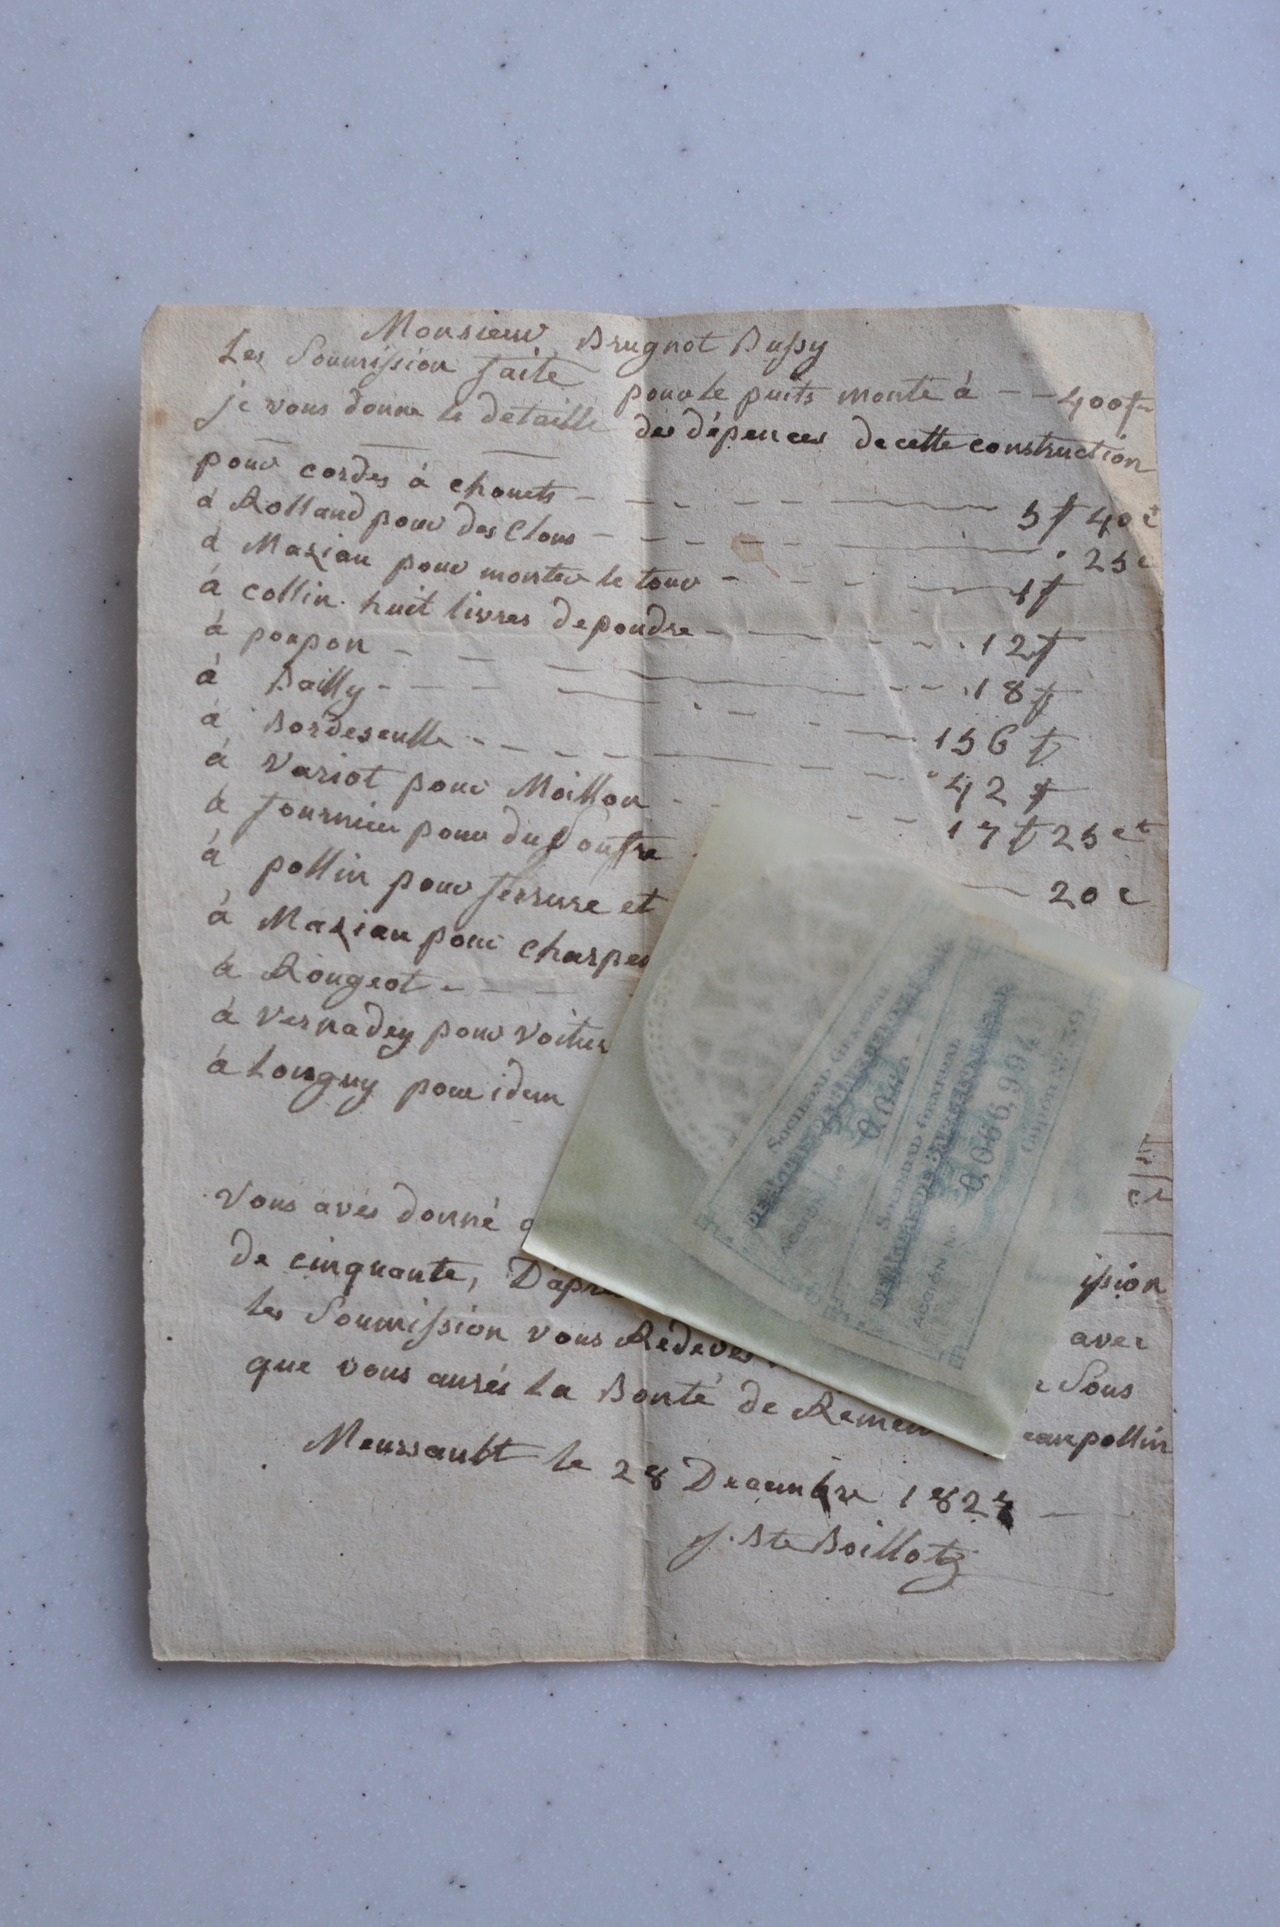 Monsieur Brugnot Bussy
Les Soumission faite pour le puits monte à - - 400f
je vous donne le détaille des dépences de cette construction
pour cordes à chouets - - - - 5f 40c
à Rolland pour des Clous - - - - 25c
à Mazian pour monter le tour - - - 1f
à collin huit livres de poudre - - - 12f
à poupon - - - - 18f
à Bailly - - - - 156f
à Bordeseulle - - - - 42f
à Variot pour Moillon - - - 17f 25ct
à fournier pour du Souffre - 20c
à pollin pour ferrure et
à Mazian pour charpe
à Rougeot - - -
à Vernadey pour voitur
à Longuy pour idem
Vous avés donné
de cinquante, D'apr ission
les Soumission vous Redevés avec
que vous aurés la Bonté de Reme Sous
jean pollin
Meursault le 28 Decembre 182
j. Bte Boillot
SOCIEDAD GENERAL
ACCIÓN No
SOCIEDAD GENERAL
ACCIÓN No
0,066,904
CUPÓN Nº 39